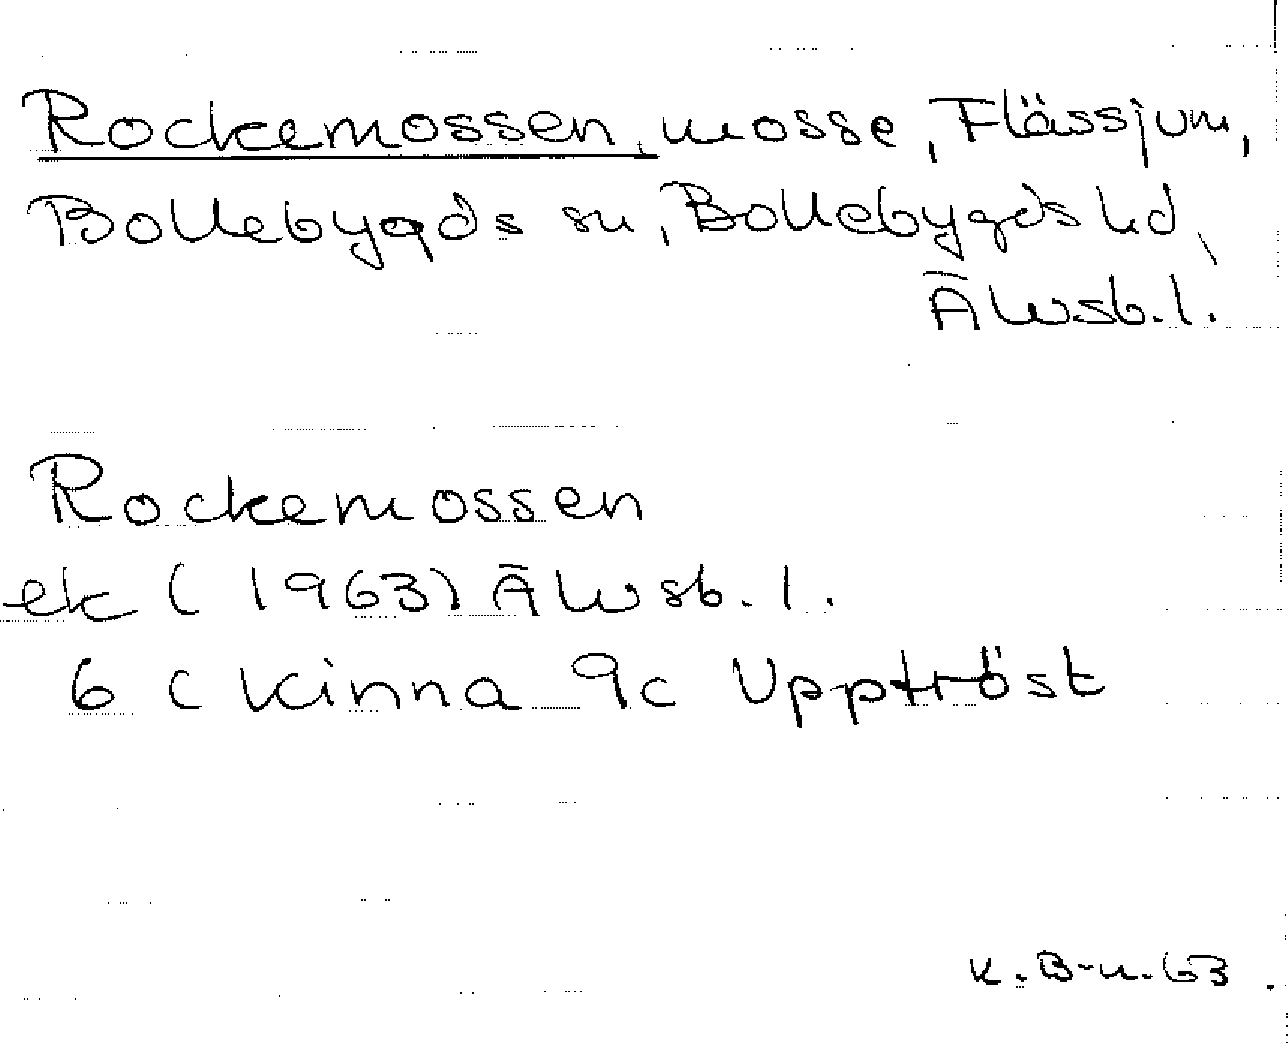 Rockemossen, mosse, Flässjum,
Bollebygds sn, Bollebygds hd,
Älvsb. l.
Rockemossen
ek (1963) Älvsb. l.
6 C Kinna 9c Upptröst
K. B-n. 63